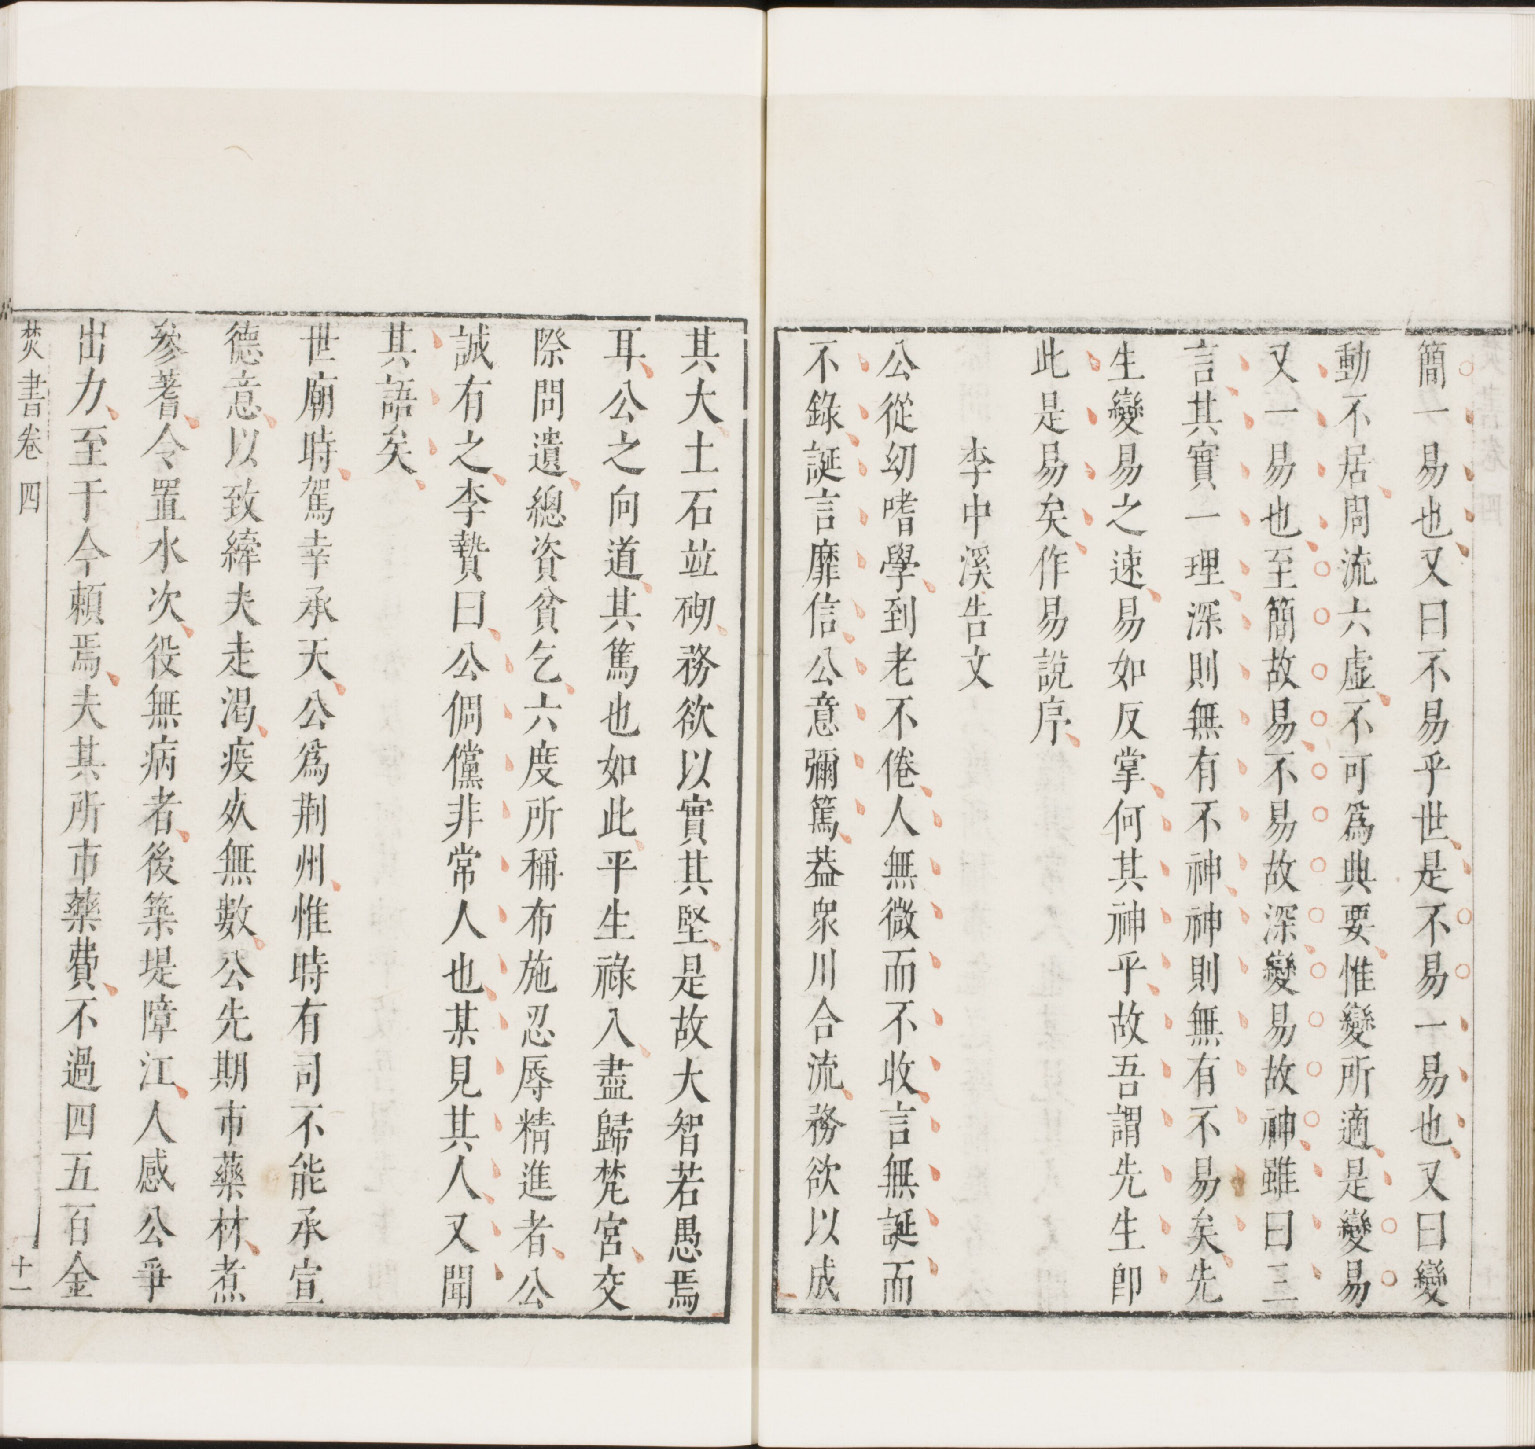 簡一易也又曰不易乎世是不易一易也又曰變
動不居周流六虛不可爲典要惟變所適是變易
又一易也至簡故易不易故深變易故神雖曰三
言其實一理深則無有不神神則無有不易矣先
生變易之速易如反掌何其神乎故吾謂先生卽
此是易矣作易說序
李中溪告文
公從幼嗜學到老不倦人無微而不收言無誕而
不錄誕言靡信公意彌篤葢衆川合流務欲以成
其大土石竝砌務欲以實其堅是故大智若愚焉
耳公之向道其篤也如此平生祿入盡歸梵宮交
際問遺總資貧乞六度所稱布施忍辱精進者公
誠有之李贄曰公倜儻非常人也某見其人又聞
其語矣
世廟時駕幸承天公爲荆州惟時有司不能承宣
德意以致縴夫走渴疫㱙無數公先期市藥材煮
參蓍令置水次役無病者後築堤障江人感公爭
出力至于今賴焉夫其所市藥費不過四五百金
焚書卷四
十一